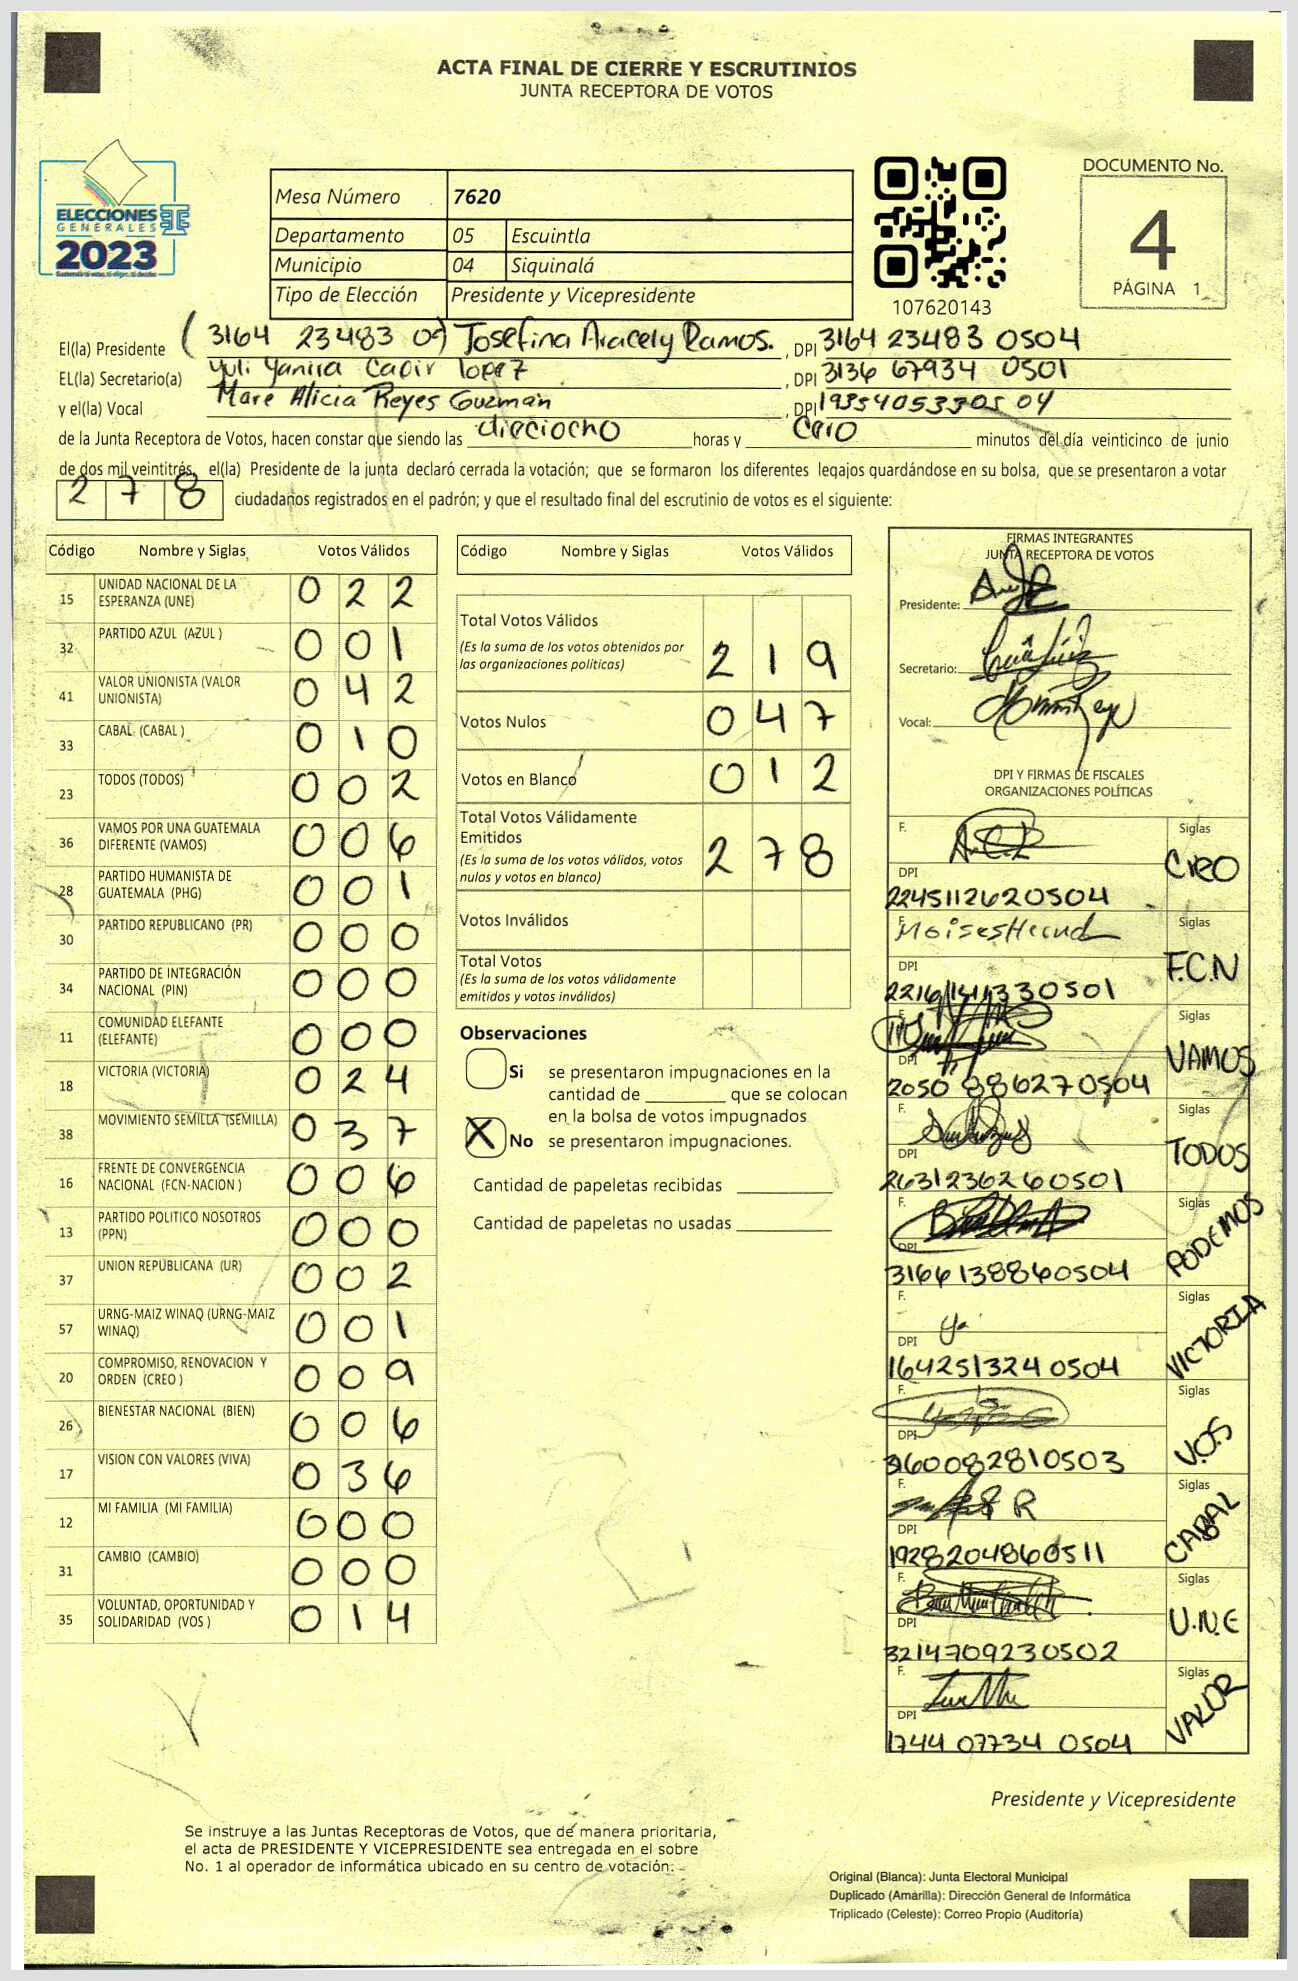 ACTA FINAL DE CIERRE Y ESCRUTINIOS
JUNTA RECEPTORA DE VOTOS
ELECCIONES
GENERALES
2023
Mesa Número 7620
Departamento 05 Escuintla
Municipio 04 Siquinalá
Tipo de Elección Presidente y Vicepresidente
107620143
DOCUMENTO No.
4
PÁGINA 1
El(la) Presidente (3164 23483 09) Josefina Aracely Ramos. , DPI 3164 23483 0504
EL(la) Secretario(a) Yuli Yanira Caoir lopez , DPI 3136 67934 0501
y el(la) Vocal Mare Alicia Reyes Guzmán , DPI 1935405330504
de la Junta Receptora de Votos, hacen constar que siendo las dieciocho horas y Cero minutos del día veinticinco de junio
de dos mil veintitrés, el(la) Presidente de la junta declaró cerrada la votación; que se formaron los diferentes legajos quardándose en su bolsa, que se presentaron a votar
278 ciudadanos registrados en el padrón; y que el resultado final del escrutinio de votos es el siguiente:
Código Nombre y Siglas Votos Válidos
15 UNIDAD NACIONAL DE LA ESPERANZA (UNE) 0 2 2
32 PARTIDO AZUL (AZUL ) 0 0 1
41 VALOR UNIONISTA (VALOR UNIONISTA) 0 4 2
33 CABAL (CABAL ) 0 1 0
23 TODOS (TODOS) 0 0 2
36 VAMOS POR UNA GUATEMALA DIFERENTE (VAMOS) 0 0 6
28 PARTIDO HUMANISTA DE GUATEMALA (PHG) 0 0 1
30 PARTIDO REPUBLICANO (PR) 0 0 0
34 PARTIDO DE INTEGRACIÓN NACIONAL (PIN) 0 0 0
11 COMUNIDAD ELEFANTE (ELEFANTE) 0 0 0
18 VICTORIA (VICTORIA) 0 2 4
38 MOVIMIENTO SEMILLA (SEMILLA) 0 3 7
16 FRENTE DE CONVERGENCIA NACIONAL (FCN-NACION ) 0 0 6
13 PARTIDO POLITICO NOSOTROS (PPN) 0 0 0
37 UNION REPUBLICANA (UR) 0 0 2
57 URNG-MAIZ WINAQ (URNG-MAIZ WINAQ) 0 0 1
20 COMPROMISO, RENOVACION Y ORDEN (CREO ) 0 0 9
26 BIENESTAR NACIONAL (BIEN) 0 0 6
17 VISION CON VALORES (VIVA) 0 3 6
12 MI FAMILIA (MI FAMILIA) 0 0 0
31 CAMBIO (CAMBIO) 0 0 0
35 VOLUNTAD, OPORTUNIDAD Y SOLIDARIDAD (VOS ) 0 1 4
Código Nombre y Siglas Votos Válidos
Total Votos Válidos 2 1 9
(Es la suma de los votos obtenidos por
las organizaciones políticas)
Votos Nulos 0 4 7
Votos en Blanco 0 1 2
Total Votos Válidamente
Emitidos 2 7 8
(Es la suma de los votos válidos, votos
nulos y votos en blanco)
Votos Inválidos
Total Votos
(Es la suma de los votos válidamente
emitidos y votos inválidos)
Observaciones
Si se presentaron impugnaciones en la
cantidad de ________ que se colocan
en la bolsa de votos impugnados
X No se presentaron impugnaciones.
Cantidad de papeletas recibidas
Cantidad de papeletas no usadas
FIRMAS INTEGRANTES
JUNTA RECEPTORA DE VOTOS
Presidente:
Secretario:
Vocal:
DPI Y FIRMAS DE FISCALES
ORGANIZACIONES POLÍTICAS
F. Siglas
DPI CREO
2245112620504
F. Moises Siglas
DPI F.C.N
F. Siglas
DPI VAMOS
2050 886270504
F. Siglas
DPI TODOS
2631236260501
F. Siglas
DPI PODEMOS
3166138860504
F. Siglas
DPI VICTORIA
1642513240504
F. Siglas
DPI V.O.S
3160082810503
F. Siglas
DPI CABAL
1928204860511
F. Siglas
DPI U.N.E
3214709230502
F. Siglas
DPI VALOR
1744 07734 0504
Presidente y Vicepresidente
Se instruye a las Juntas Receptoras de Votos, que de manera prioritaria,
el acta de PRESIDENTE Y VICEPRESIDENTE sea entregada en el sobre
No. 1 al operador de informática ubicado en su centro de votación.
Original (Blanca): Junta Electoral Municipal
Duplicado (Amarilla): Dirección General de Informática
Triplicado (Celeste): Correo Propio (Auditoría)